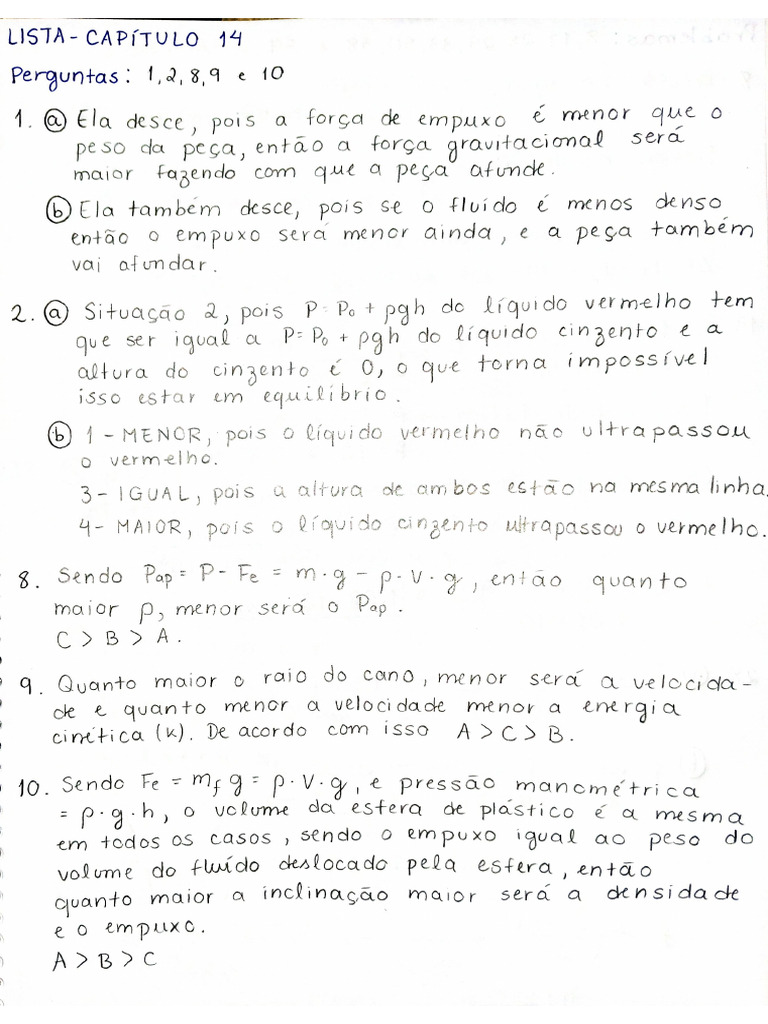 LISTA - CAPÍTULO 14
Perguntas: 1, 2, 8, 9 e 10
1. ⓐ Ela desce, pois a força de empuxo é menor que o
peso da peça, então a força gravitacional será
maior fazendo com que a peça afunde.
ⓑ Ela também desce, pois se o fluído é menos denso
então o empuxo será menor ainda, e a peça também
vai afundar.
2. ⓐ Situação 2, pois P = P₀ + ρgh do líquido vermelho tem
que ser igual a P = P₀ + ρgh do líquido cinzento e a
altura do cinzento é 0, o que torna impossível
isso estar em equilíbrio.
ⓑ 1 - MENOR, pois o líquido vermelho não ultrapassou
o vermelho.
3 - IGUAL, pois a altura de ambos estão na mesma linha.
4 - MAIOR, pois o líquido cinzento ultrapassou o vermelho.
8. Sendo Pap = P - Fe = m · g - ρ · V · g, então quanto
maior ρ, menor será o Pap.
C > B > A.
9. Quanto maior o raio do cano, menor será a velocida-
de e quanto menor a velocidade menor a energia
cinética (k). De acordo com isso A > C > B.
10. Sendo Fe = mf g = ρ · V · g, e pressão manométrica
= ρ · g · h, o volume da esfera de plástico é a mesma
em todos os casos, sendo o empuxo igual ao peso do
volume do fluído deslocado pela esfera, então
quanto maior a inclinação maior será a densidade
e o empuxo.
A > B > C